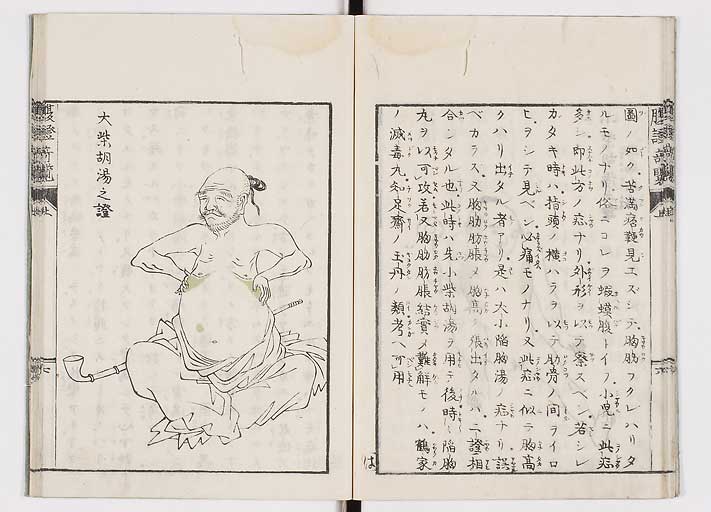 圖ノ如ク苦滿痞鞕見エズシテ胸脇フクレハリタ
ルモノナリ俗ニコレヲ蝦蟆腹トイフ小兒ニ此症
多シ即此方ノ症ナリ外形ヲ以テ察スベシ若シレ
カタキ時ハ指頭ノ橫ハラヲ以テ肋骨ノ間ヲイロ
ヒヲシテ見ベシ必痛モノナリ又此症ニ似テ胸高
クハリ出タル者アリ是ハ大小陷胸湯ノ症ナリ誤
ベカラス又胸脇肋脹メ胸高ク張出タルハ二證相
合シタル也此時ハ先小柴胡湯ヲ用テ後時時陷胸
丸ヲ以可攻若又胸肋肋脹結實メ難解モノハ鶴家
ノ滅毒丸知足齋ノ玉丹ノ類考ヘ可用
大柴胡湯之證
腹證奇覽